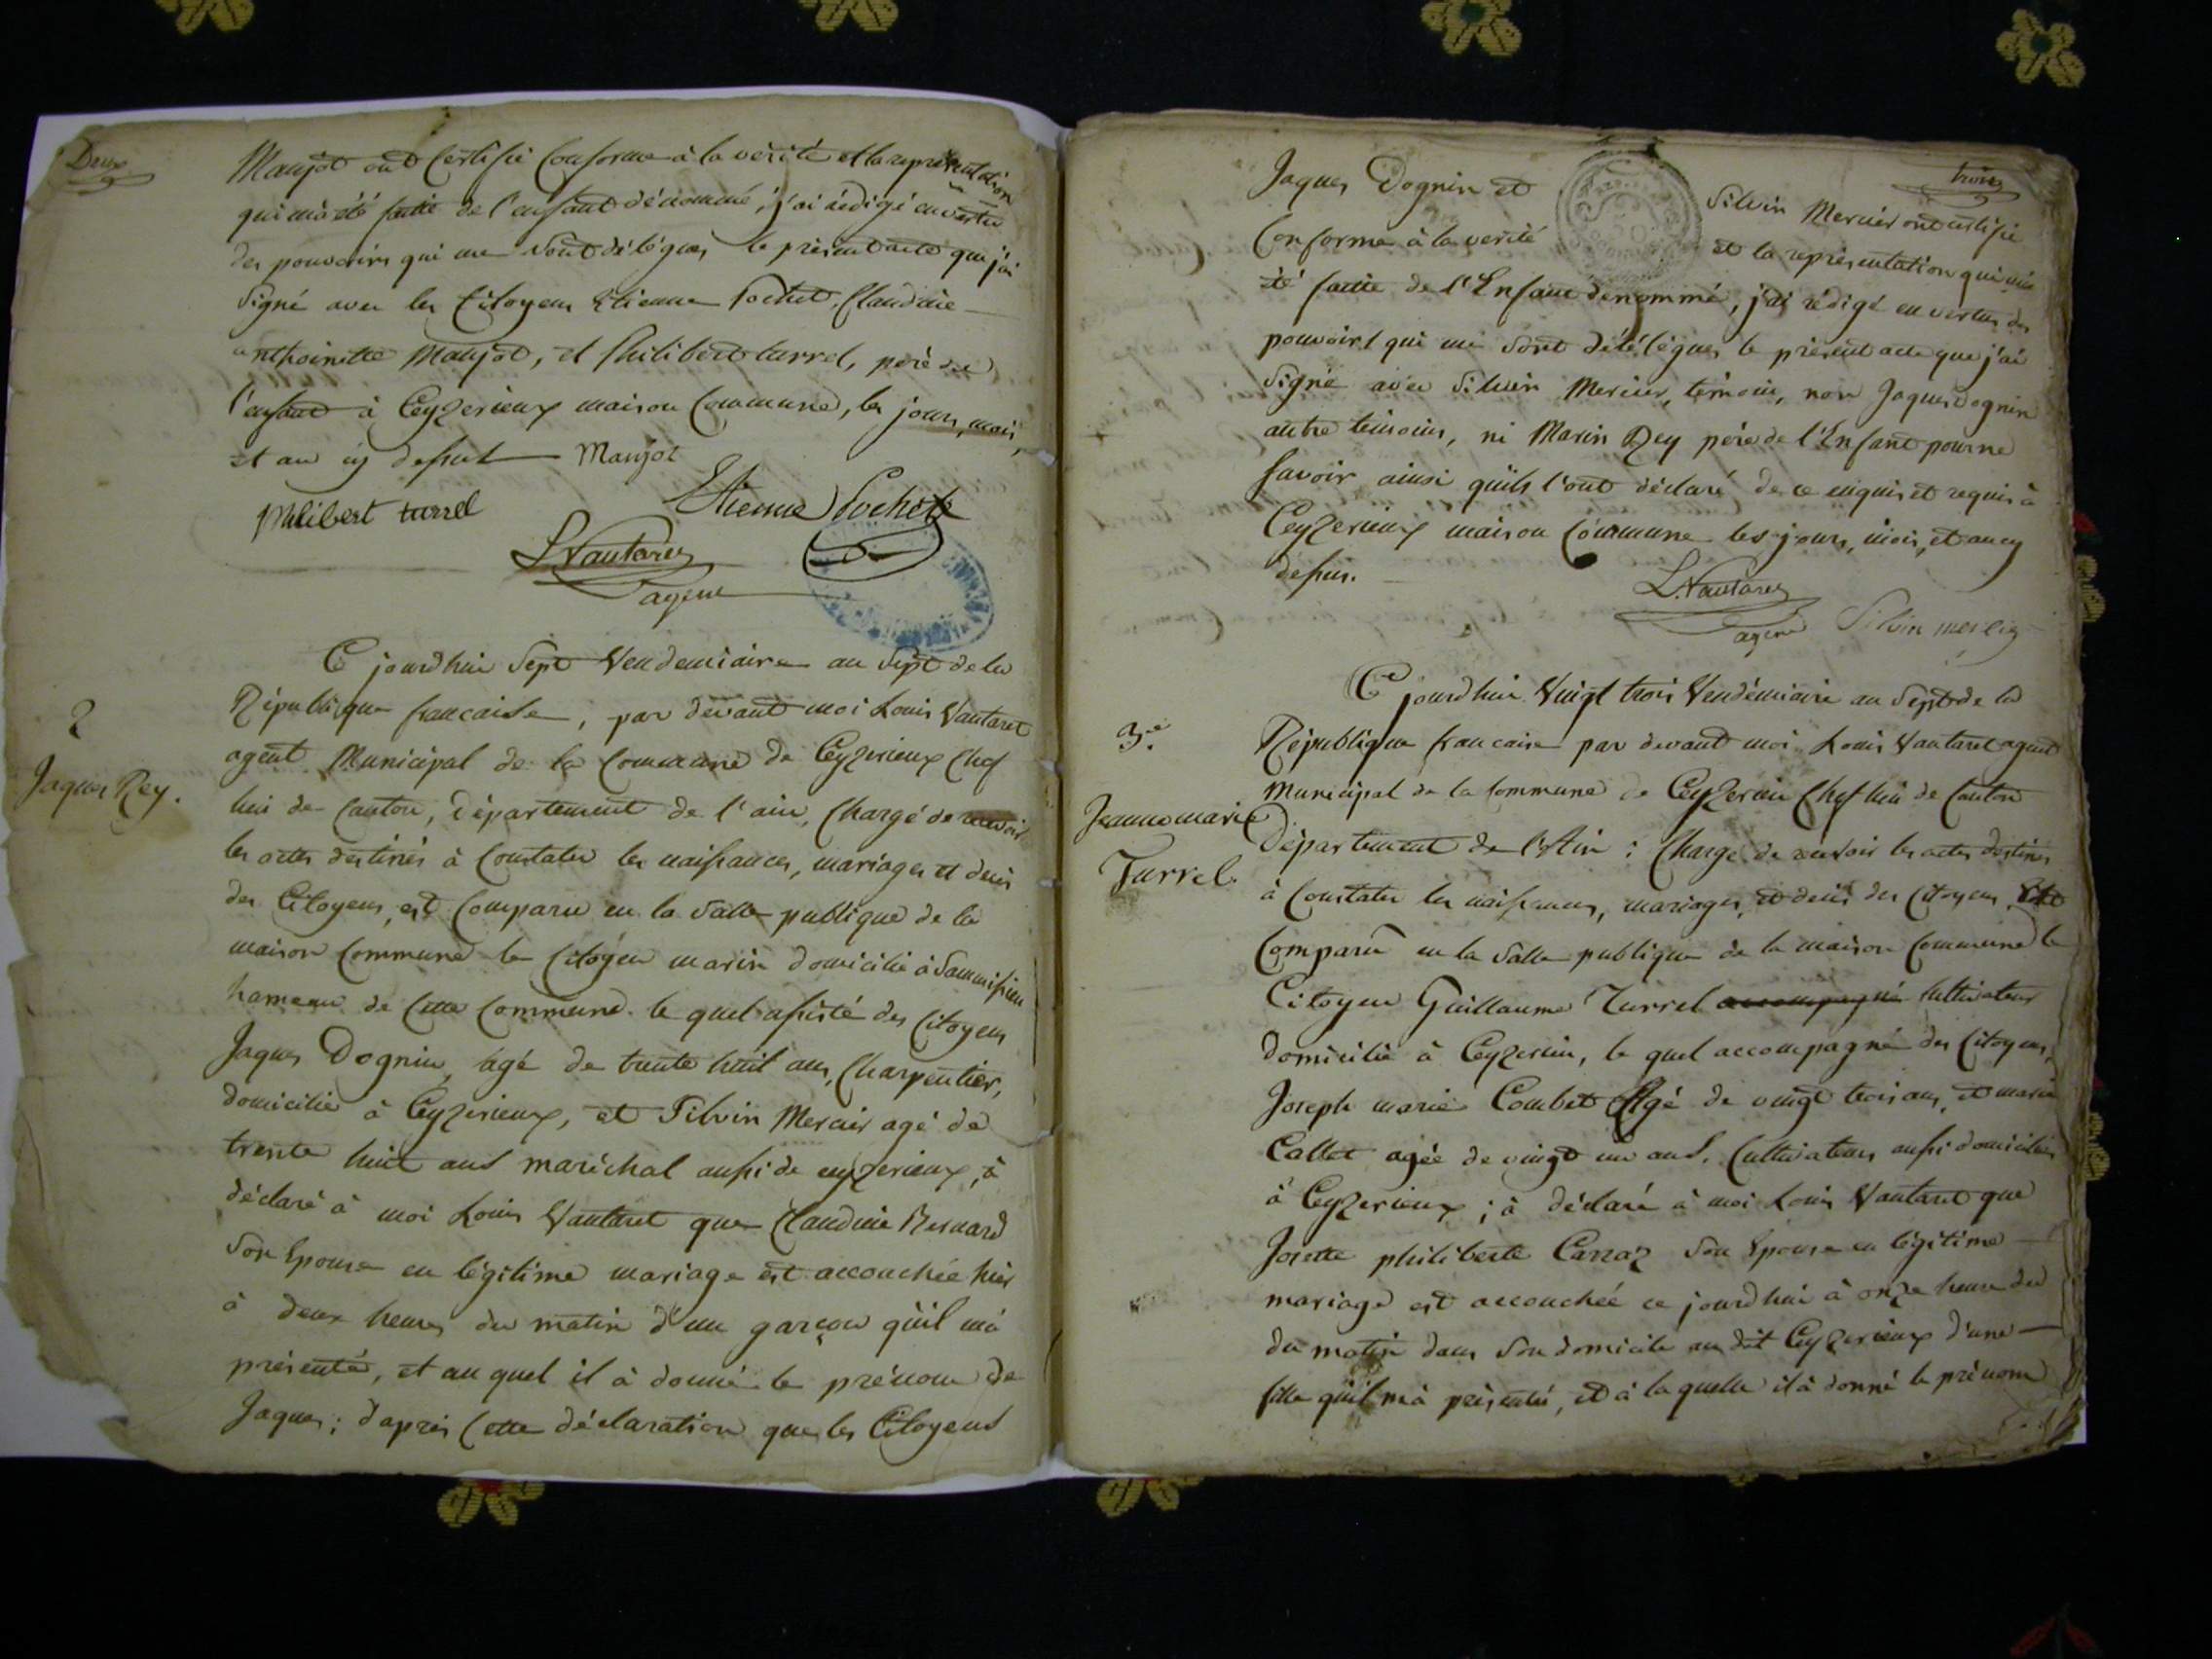 Deux
Manjot ont Certifié Conforme à la vérité et la représentation
qui m'a été faitte de l'enfant dénommé, j'ai rédigé en vertu
des pouvoirs qui me sont délégués le présent acte que j'ai
Signé avec les Citoyens Etienne Pochet, Claudine
anthoinette Manjot, et philibert turrel, père de
l'enfant à Ceyzerieux maison Commune, les jours, mois,
et an cy dessus Manjot
philibert turrel
Etienne Pochet
L. Vautaret
agent
2
Jaques Rey.
Ce jourdhui Sept Vendemiaire an Sept de la
République francaise, par devant moi Louis Vautaret
agent Municipal de la Commune de Ceyzerieux Chef
lieu de Canton, Département de l'ain, Chargé de recevoir
les actes destinés à Constater les naissances, mariages et decés
des Citoyens, est Comparu en la Salle publique de la
maison Commune le Citoyen marin domicilié à
hameau de Cette Commune. le quel assisté des Citoyens
Jaques Dognin, agé de trente huit ans, Charpentier,
domicilié à Ceyzerieux, et Silvin Mercier agé de
trente huit ans maréchal aussi de ceyzerieux, à
déclaré à moi Louis Vautaret que Claudine Bernard
Son Epouse en légitime mariage est accouchée hier
à deux heures du matin d'un garçon qu'il m'a
présenté, et au quel il à donné le prénom de
Jaques; d'après Cette déclaration que les Citoyens
trois
Jaques Dognin et Silvin Mercier ont certifié
Conforme à la verité et la représentation qui m'a
été faitte de l'Enfant denommé, j'ai rédigé en vertu des
pouvoirs qui me sont délélégués le présent acte que j'ai
Signé avec Silvin Mercier, témoin, non Jaques Dognin
autre témoin, ni Marin Rey père de l'Enfant pour ne
Savoir ainsi qu'ils l'ont déclaré de ce enquis et requis à
Ceyzerieux maison Commune les jours, mois, et an cy
dessus.
L. Vautaret
agent
Silvin
3.e
Jeanne marie
Turrel.
Ce jourdhui Vingt trois Vendémiaire an Sept de la
République francaise par devant moi Louis Vautaret agent
Municipal de la Commune de Ceyzerieu Chef lieu de Canton
Département de l'Ain: Chargé de recevoir les actes destinés
à Constater les naissances, mariages, et decés des Citoyens, Est
Comparu en la Salle publique de la maison Commune le
Citoyen Guillaume Turrel accompagné Cultivateur
domicilié à Ceyzerieu, le quel accompagné des Citoyens,
Joseph marie Combet Agé de vingt trois ans, et marie
Callet agée de vingt un ans. Cultivateurs aussi domiciliés
à Ceyzerieux; à déclaré à moi Louis Vautaret que
Josette philiberte Carraz Son Epouse en légitime
mariage est accouchée ce jourdhui à onze heure du
du matin dans Son domicile au dit Ceyzerieux d'une
fille qu'il m'à présentés, et à la quelle il à donné le prénom